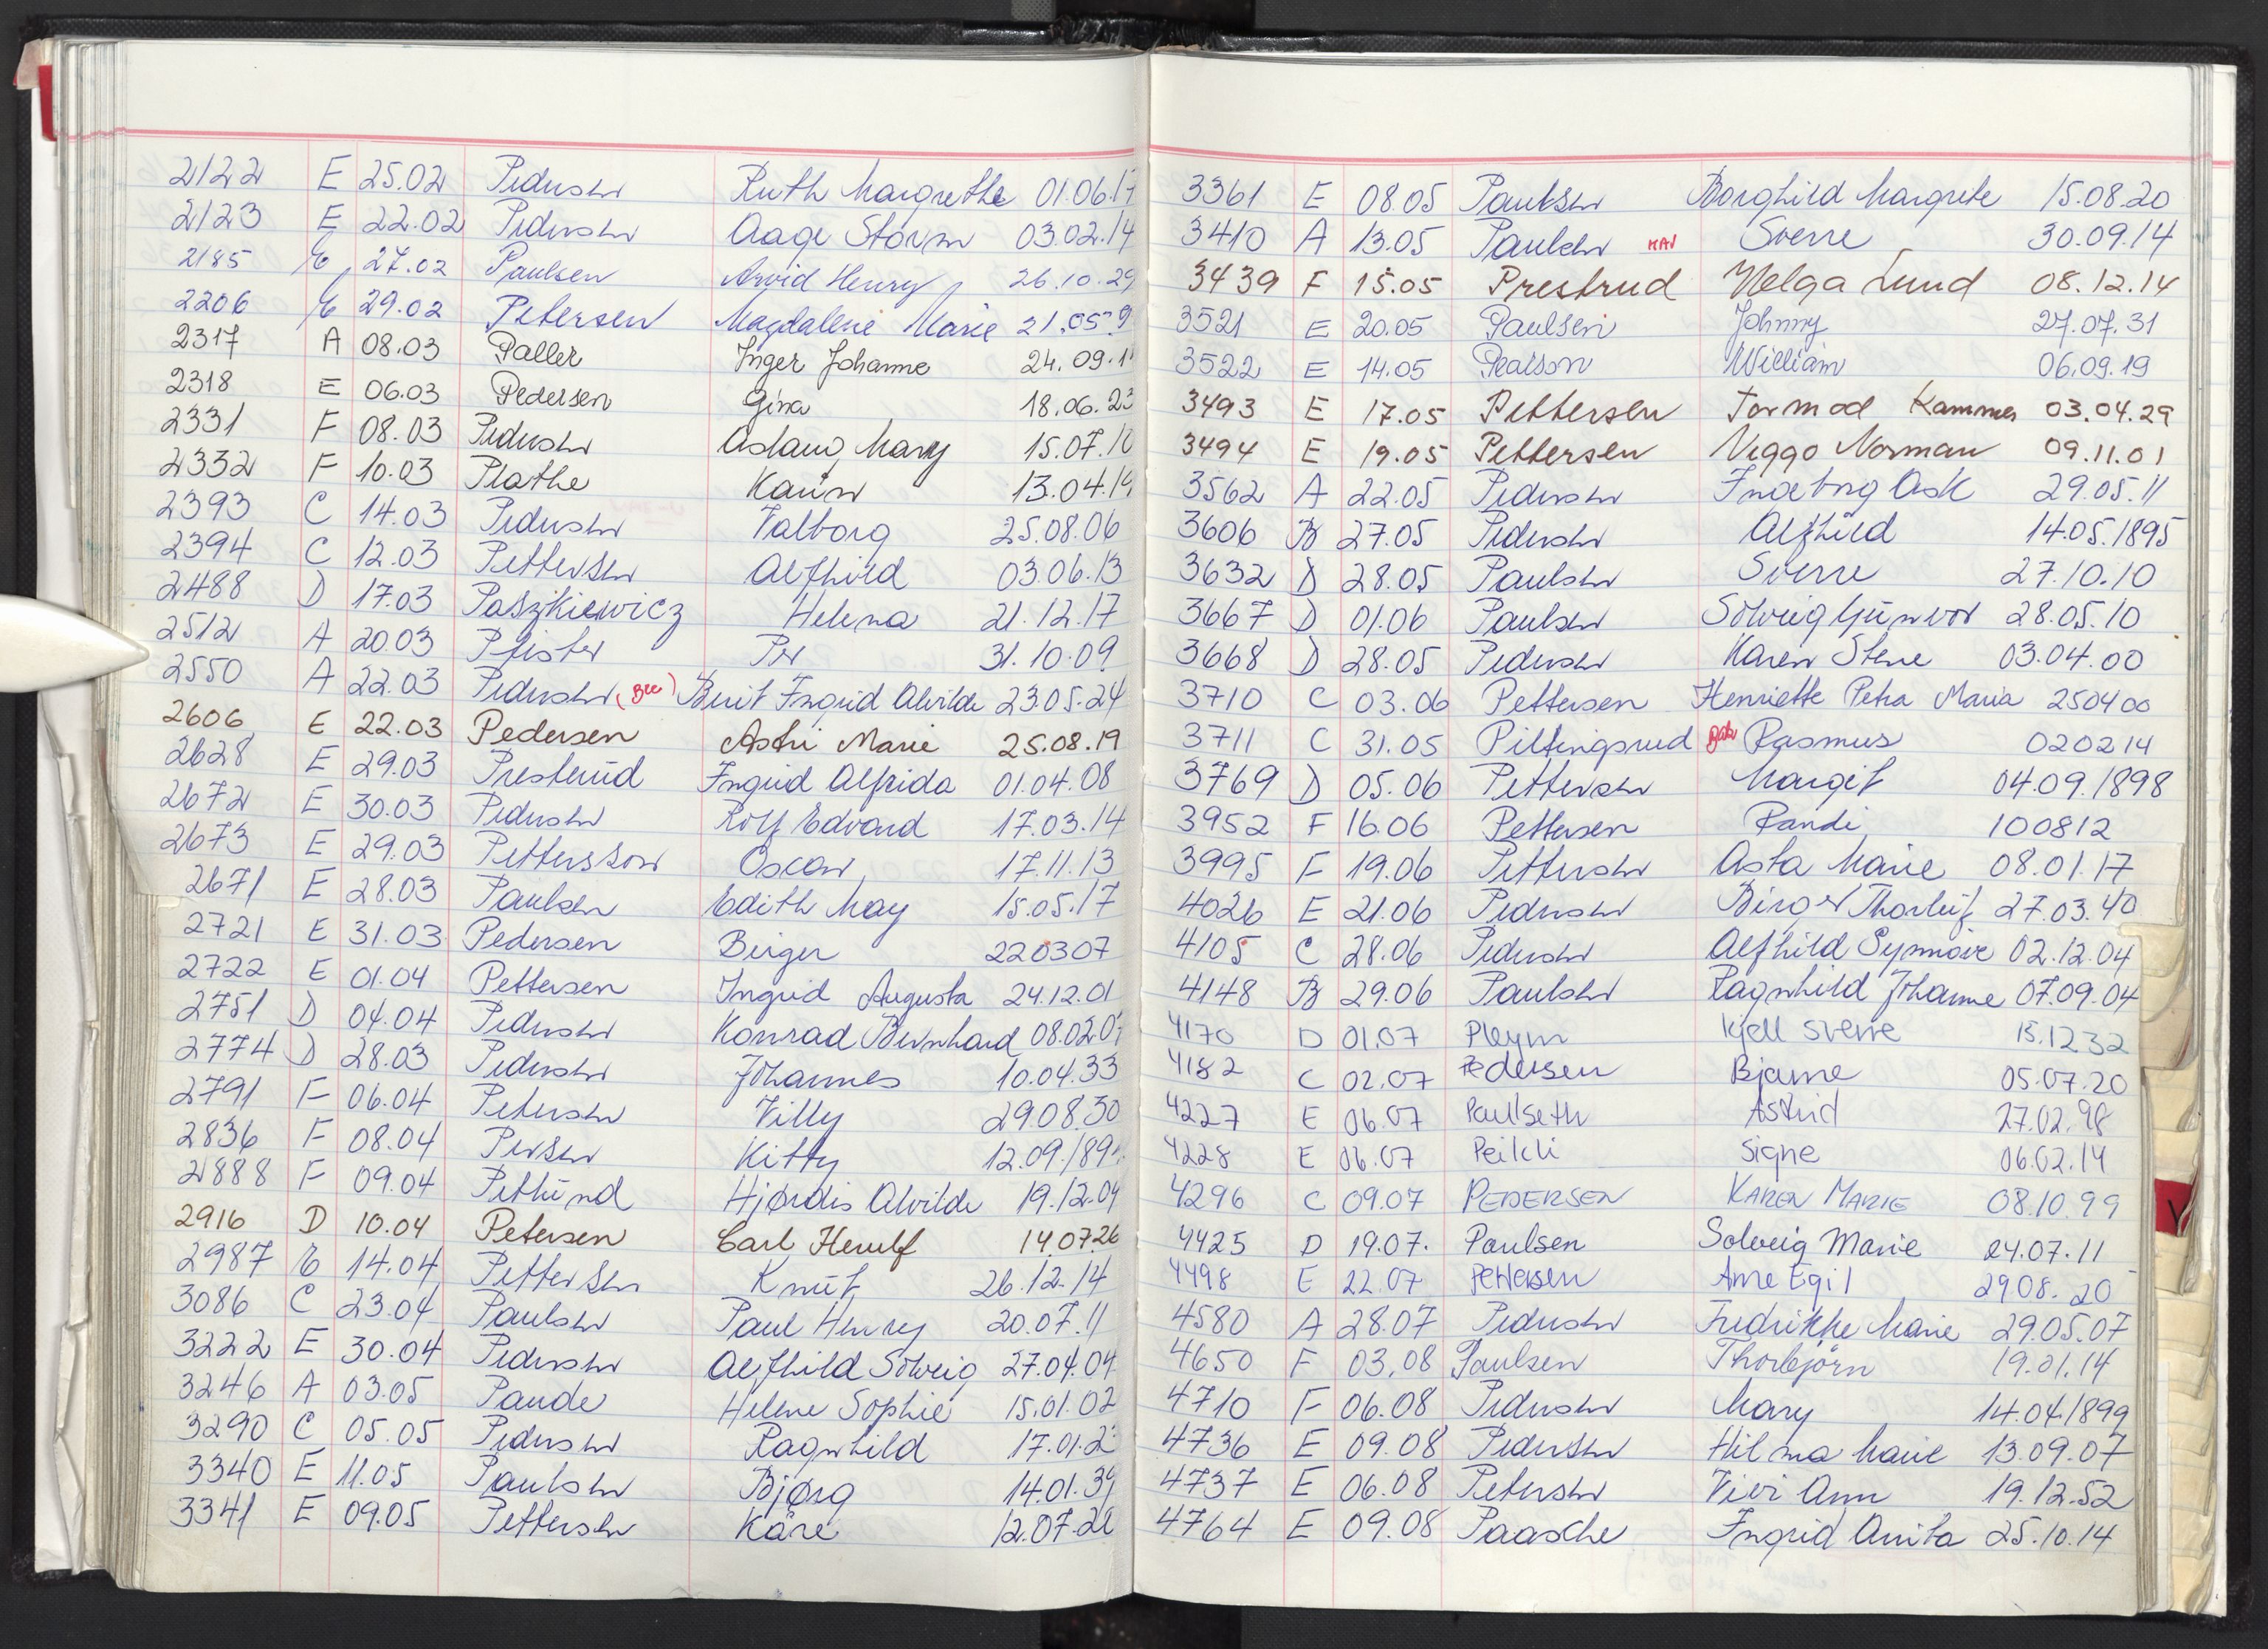 2122 E 25.02 Pedersen Ruth Margrethe 01.06.17
2123 E 22.02 Pedersen Aage Storm 03.02.14
2185 E 27.02 Paulsen Arvid Henry 26.10.29
2206 E 29.02 Petersen Magdalene Marie 21.05.9
2317 A 08.03 Paller Inger Johanne 24.09.1
2318 E 06.03 Pedersen Gina 18.06.23
2331 F 08.03 Pedersen Aslaug Mary 15.07.1
2332 F 10.03 Plathe Karin 13.04.19
2393 C 14.03 Pedersen Valborg 25.08.06
2394 C 12.03 Pettersen Alfhild 03.06.13
2488 D 17.03 Paszkiewicz Helena 21.12.17
2512 A 20.03 Pfister Per 31.10.09
2550 A 22.03 Pedersen Berit Ingrid Alvilde 23.05.24
2606 E 22.03 Pedersen Astri Marie 25.08.19
2628 E 29.03 Presterud Ingrid Alfrida 01.04.08
2672 E 30.03 Pedersen Rolf Edvard 17.03.14
2673 E 29.03 Pettersson Oscar 17.11.13
2671 E 28.03 Paulsen Edith May 15.05.17
2721 E 31.03 Pedersen Birger 220307
2722 E 01.04 Pettersen Ingrid Augusta 24.12.01
2751 D 04.04 Pedersen Konrad Bernhard 08.02.0
2774 D 28.03 Pedersen Johannes 10.04.33
2791 F 06.04 Petersen Villy 29.08.30
2836 F 08.04 Persen Kitty 12.09.189
2888 F 09.04 Petlund Hjørdis Alvilde 19.12.09
2916 D 10.04 Petersen Carl Herulf 14.07.26
2987 E 14.04 Pettersen Knut 26.12.14
3086 C 23.04 Paulsen Paul Henry 20.07.11
3222 E 30.04 Pedersen Alfhild Solveig 27.04.04
3246 A 03.05 Paude Helene Sophie 15.01.02
3290 C 05.05 Pedersen Ragnhild 17.01.2
3340 E 11.05 Paulsen Bjørg 14.01.39
3341 E 09.05 Pettersen Kåre 12.07.20
3361 E 08.05 Paulsen Borghild Margrete 15.08.20
3410 A 13.05 Paulsen Sverre 30.09.14
3439 F 15.05 Prestrud Helga Lund 08.12.14
3521 E 20.05 Paulsen Johnny 27.07.31
3522 E 14.05 Pearson William 06.09.19
3493 E 17.05 Pettersen Tormod Kammes 03.04.29
3494 E 19.05 Pettersen Viggo Norman 09.11.01
3562 A 22.05 Pedersen Ingeborg Ask 29.05.11
3606 B 27.05 Pedersen Alfhild 14.05.1895
3632 D 28.05 Paulsen Sverre 27.10.10
3667 D 01.06 Paulsen Solveig Gunvor 28.05.10
3668 D 28.05 Pedersen Karen Stene 03.04.00
3710 C 03.06 Pettersen Henriette Petra Maria 250400
3711 C 31.05 Piltingsrud Rasmus 020214
3769 D 05.06 Pettersen Margit 04.09.1898
3952 F 16.06 Pettersen Randi 100812
3995 F 19.06 Pettersen Asta Marie 08.01.17
4026 E 21.06 Pedersen Birger Thorleif 27.03.40
4105 C 28.06 Pedersen Alfhild Synnøve 02.12.04
4148 B 29.06 Paulsen Ragnhild Johanne 07.09.04
4170 D 01.07 Pleym Kjell Sverre 15.12 32
4182 C 02.07 Pedersen Bjarne 05.07.20
4227 E 06.07 Paulseth Astrid 27.02.98
4228 E 06.07 Peikli Signe 06.02.14
4296 C 09.07 PEDERSEN KAREN MARIE 08.10.99
4425 D 19.07. Paulsen Solveig Marie 24.07.11
4498 E 22.07 Pettersen Arne Egil 2908.20
4580 A 28.07 Pedersen Fredrikke Marie 29.05.07
4650 F 03.08 Paulsen Thorbjørn 19.01.14
4710 F 06.08 Pedersen Mary 14.04.1899
4736 E 09.08 Pedersen Hilma Marie 13.09.07
4737 E 06.08 Petersen Vivi Ann 19.12.52
4764 E 09.08 Paasche Ingrid Anita 25.10.14